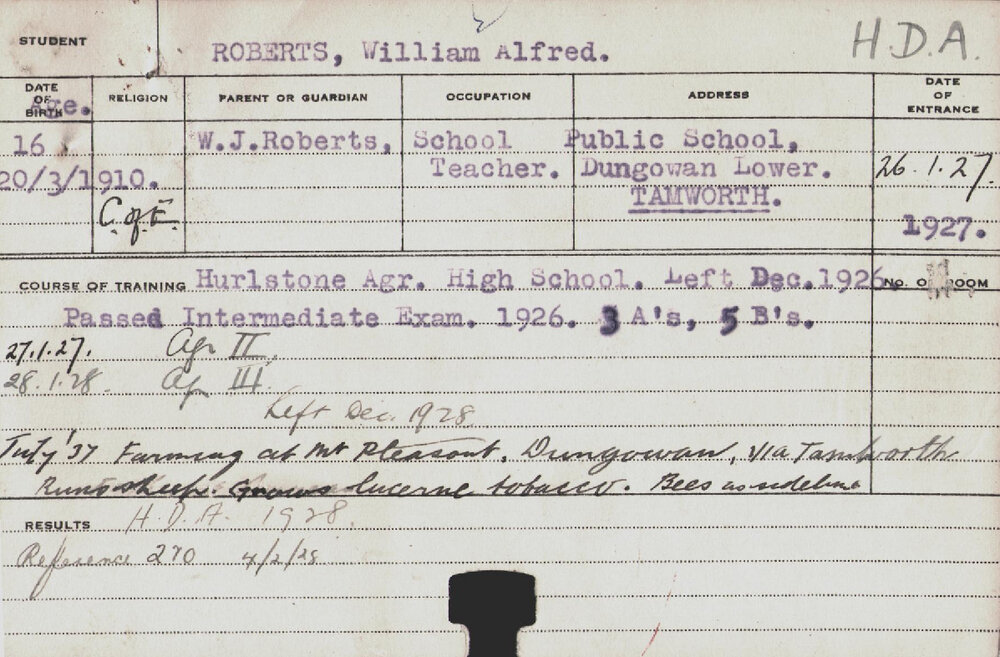 STUDENT ROBERTS, William Alfred. H.D.A.
DATE OF BIRTH Age. RELIGION PARENT OR GUARDIAN OCCUPATION ADDRESS DATE OF ENTRANCE
16 W.J.Roberts, School Public School,
Teacher. Dungowan Lower. 26.1.27.
20/3/1910. TAMWORTH.
C. of E. 1927.
COURSE OF TRAINING Hurlstone Agr. High School. Left Dec.1926. No. O ROOM
Passed Intermediate Exam. 1926. 3 A's, 5 B's.
27.1.27. Agr II.
28.1.28. Agr III.
Left Dec. 1928
July '37 Farming at Mt Pleasant, Dungowan, via Tamworth
Runs sheep. Grows lucerne tobacco. Bees as sideline
RESULTS H.D.A. 1928.
Reference 270 4/2/29